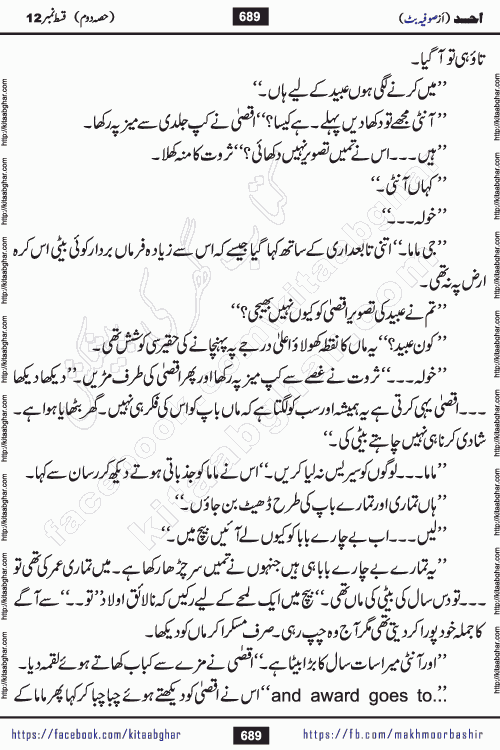 احد (از صوفیہ بٹ) 689 (حصہ دوم) قسط نمبر 12
تاؤ ہی تو آ گیا۔
’’میں کرنے لگی ہوں عبید کے لیے ہاں۔‘‘
’’آنٹی مجھے تو دکھا دیں پہلے۔ ہے کیسا؟‘‘ اقصیٰ نے کپ جلدی سے میز پہ رکھا۔
’’ہیں۔۔۔ اس نے تمیں تصویر نہیں دکھائی؟‘‘ ثروت کا منہ کھلا۔
’’کہاں آنٹی۔‘‘
’’خولہ۔۔۔‘‘
’’جی ماما۔‘‘ اتنی تابعداری کے ساتھ کہا گیا جیسے کہ اس سے زیادہ فرماں بردار کوئی بیٹی اس کرہ
ارض پہ نہ تھی۔
’’تم نے عبید کی تصویر اقصیٰ کو کیوں نہیں بھیجی؟‘‘
’’کون عبید؟‘‘ یہ ماں کا نقطہ کھولاؤ اعلیٰ درجے پہ پہنچانے کی حقیر سی کوشش تھی۔
’’خولہ۔۔۔‘‘ ثروت نے غصے سے کپ میز پہ رکھا اور پھر اقصیٰ کی طرف مڑیں۔ ’’دیکھا دیکھا
۔۔۔ اقصیٰ یہی کرتی ہے یہ ہمیشہ اور سب کو لگتا ہے کہ ماں باپ کو اس کی فکر ہی نہیں۔ گھر بٹھایا ہوا ہے۔
شادی کرنا ہی نہیں چاہتے بیٹی کی۔‘‘
’’ماما۔۔۔ لوگوں کو سیریس نہ لیا کریں۔‘‘ اس نے ماما کو جذباتی ہوتے دیکھ کر رسان سے کہا۔
’’ہاں تماری اور تمارے باپ کی طرح ڈھیٹ بن جاؤں۔‘‘
’’لیں۔۔۔ اب بے چارے بابا کو کیوں لے آئیں بیچ میں۔‘‘
’’یہ تمارے بے چارے بابا ہی ہیں جنہوں نے تمیں سر چڑھا رکھا ہے۔ میں تماری عمر کی تھی تو
۔۔۔ تو دس سال کی بیٹی کی ماں تھی۔‘‘ بیچ میں ایک لمحے کے لیے رکیں کہ نالائق اولاد ’’تو۔۔‘‘ سے آگے
کا جملہ خود پورا کر دیتی تھی مگر آج وہ چپ رہی۔ صرف مسکرا کر ماں کو دیکھا۔
’’اور آنٹی میرا سات سال کا بڑا بیٹا ہے۔‘‘ اقصیٰ نے مزے سے کباب کھاتے ہوئے لقمہ دیا۔
’’and award goes to...‘‘ اس نے اقصیٰ کو دیکھتے ہوئے چبا چبا کر کہا پھر ماما کے
https://facebook.com/kitaabghar 689 https://fb.com/makhmoorbashir
http://kitaabghar.com
http://kitaabghar.com
کتاب گھر کی پیشکش
kitaabghar.com
facebook.com/kitaabghar